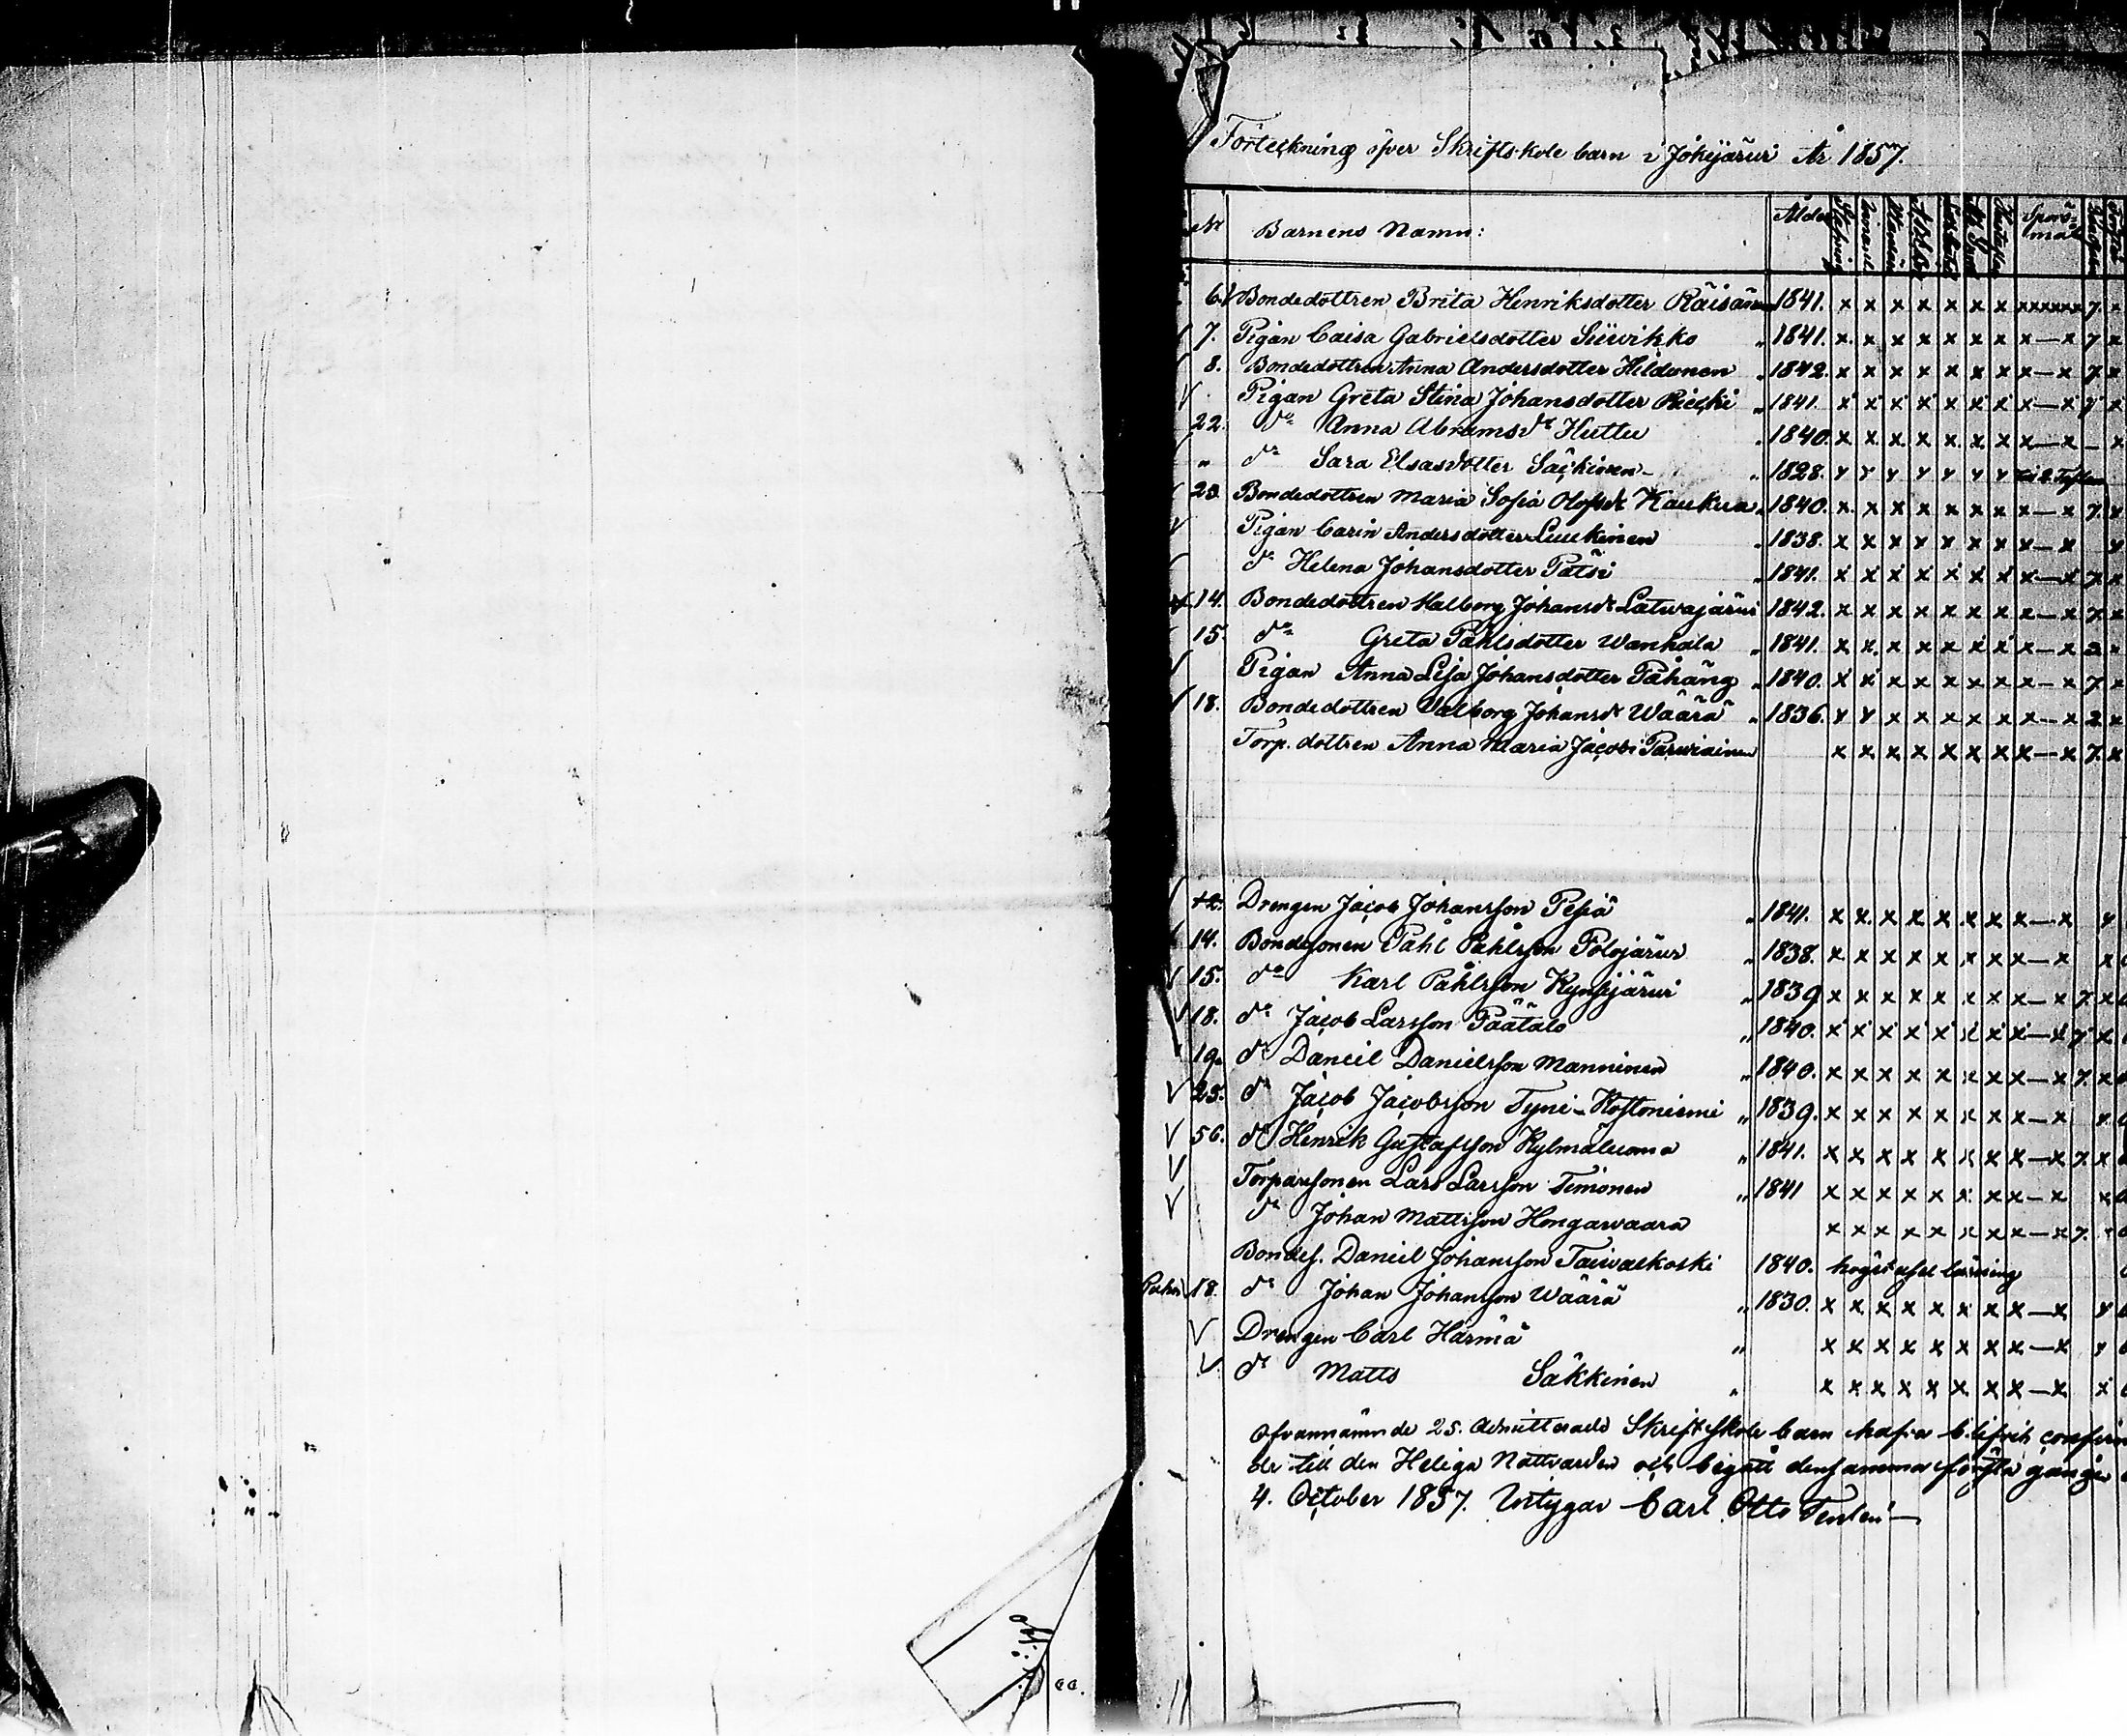 Förteckning öfver Skriftskole barn i Jokijärvi År 1857.
No Barnens Namn: Ålder Spörs-mål
6. Bondedottren Brita Henriksdotter Räisänen 1841. x x x x x x x xxxxxx 7. x
7. Pigan Caisa Gabrielsdotter Siivikko " 1841. x x x x x x x x—x 7 x
8. Bondedottren Anna Andersdotter Hildunen " 1842. x x x x x x x x—x 7. x
Pigan Greta Stina Johansdotter " 1841. x x x x x x x x—x 7 x
22. do Anna Abramsdr Huttu " 1840. x x x x x x x x—x — x
" do Sara Elsasdotter Säckinen " 1828. x x x x x x x
23. Bondedottren Maria Sofia Olofsdr Kaukua " 1840. x x x x x x x x—x 7. x
Pigan Carin Andersdotter Luukinen " 1838. x x x x x x x x—x x
do Helena Johansdotter Pätsi " 1841. x x x x x x x x—x 7. x
14. Bondedottren Walborg Johansdr Latwajärvi 1842. x x x x x x x x—x 7. x
15. do Greta Påhlsdotter Wanhala " 1841. x x x x x x x x—x 2 "
Pigan Anna Lisa Johansdotter Påhäng " 1840. x x x x x x x x—x 7. x
18. Bondedottren Valborg Johansdr Wäärä " 1836. x x x x x x x x—x 2 x
Torp. dottren Anna Maria Jacobs Parviainen x x x x x x x x—x 7. x
12. Drengen Jacob Johansson Pesiä " 1841. x x x x x x x x—x x
14. Bondesonen Påhl Påhlsson Polojärvi " 1838. x x x x x x x x—x x
15. do Karl Påhlsson Kynsijärvi " 1839 x x x x x x x x—x 7. x
18. do Jacob Larsson Päätalo " 1840. x x x x x x x x—x 7 x
19. do Daniel Danielsson Manninen " 1840. x x x x x x x x—x 7. x
23. do Jacob Jacobsson Tyni-Kostoniemi " 1839. x x x x x x x x—x x
56. do Henrik Gustafsson Kylmäluoma " 1841. x x x x x x x x—x 7. x
Torparsonen Lars Larsson Timonen " 1841 x x x x x x x x—x x
do Johan Mattsson Hongawaara x x x x x x x x—x 7. x
Bondes. Daniel Johansson Taivalkoski 1840. högst usel läsning
18. do Johan Johansson Wäärä " 1830. x x x x x x x x—x x
Drengen Carl Härmä " x x x x x x x x—x x
do Matts Säkkinen " x x x x x x x x—x x
Ofvannämnde 25. admitterade Skriftskole barn hafva blifvit confirm
de till den Heliga Nattvarden och begått densamma första gången
4. October 1857. Intygar Carl Otto